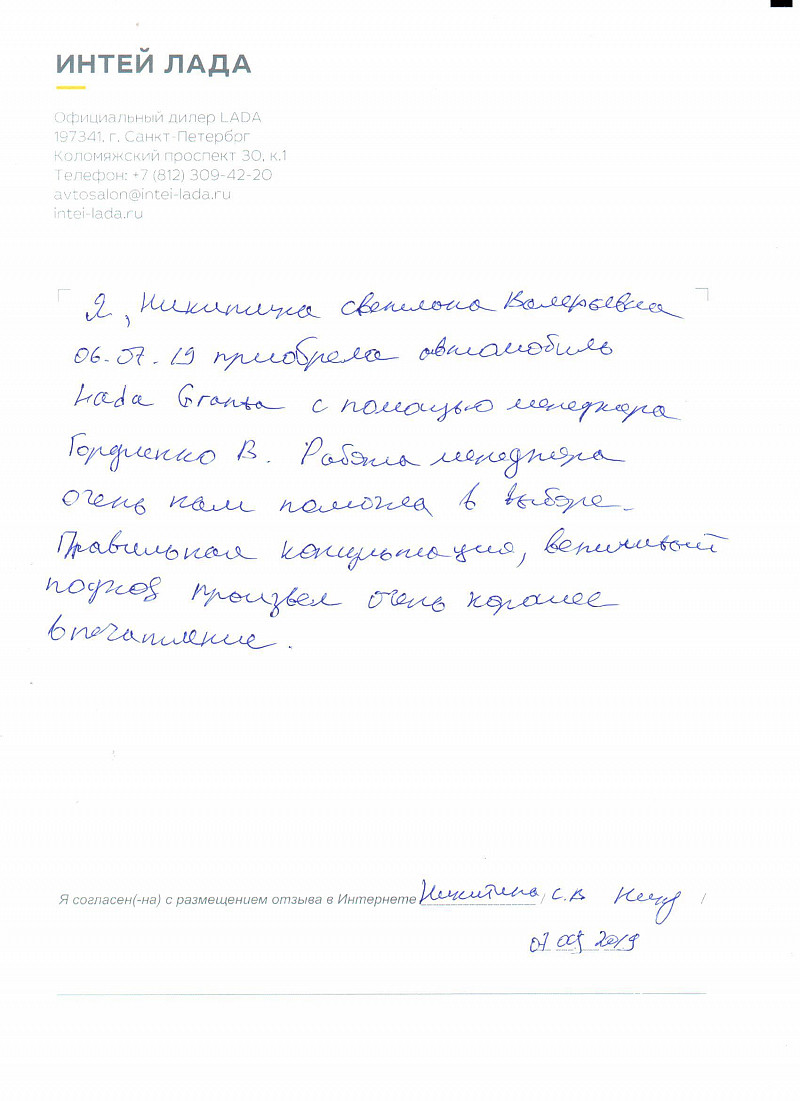 ИНТЕЙ ЛАДА
Официальный дилер LADA
197341, г. Санкт-Петербрг
Коломяжский проспект 30, к.1
Телефон: +7 (812) 309-42-20
avtosalon@intei-lada.ru
intei-lada.ru
Я, Никитина Светлана Валерьевна
06.07.19 приобрела автомобиль
Lada Granta с помощью менеджера
Гордиенко В. Работа менеджера
очень нам помогла в выборе.
Правильная консультация, вежливый
подход произвел очень хорошее
впечатление.
Я согласен(-на) с размещением отзыва в Интернете Никитина / С.В /
2019